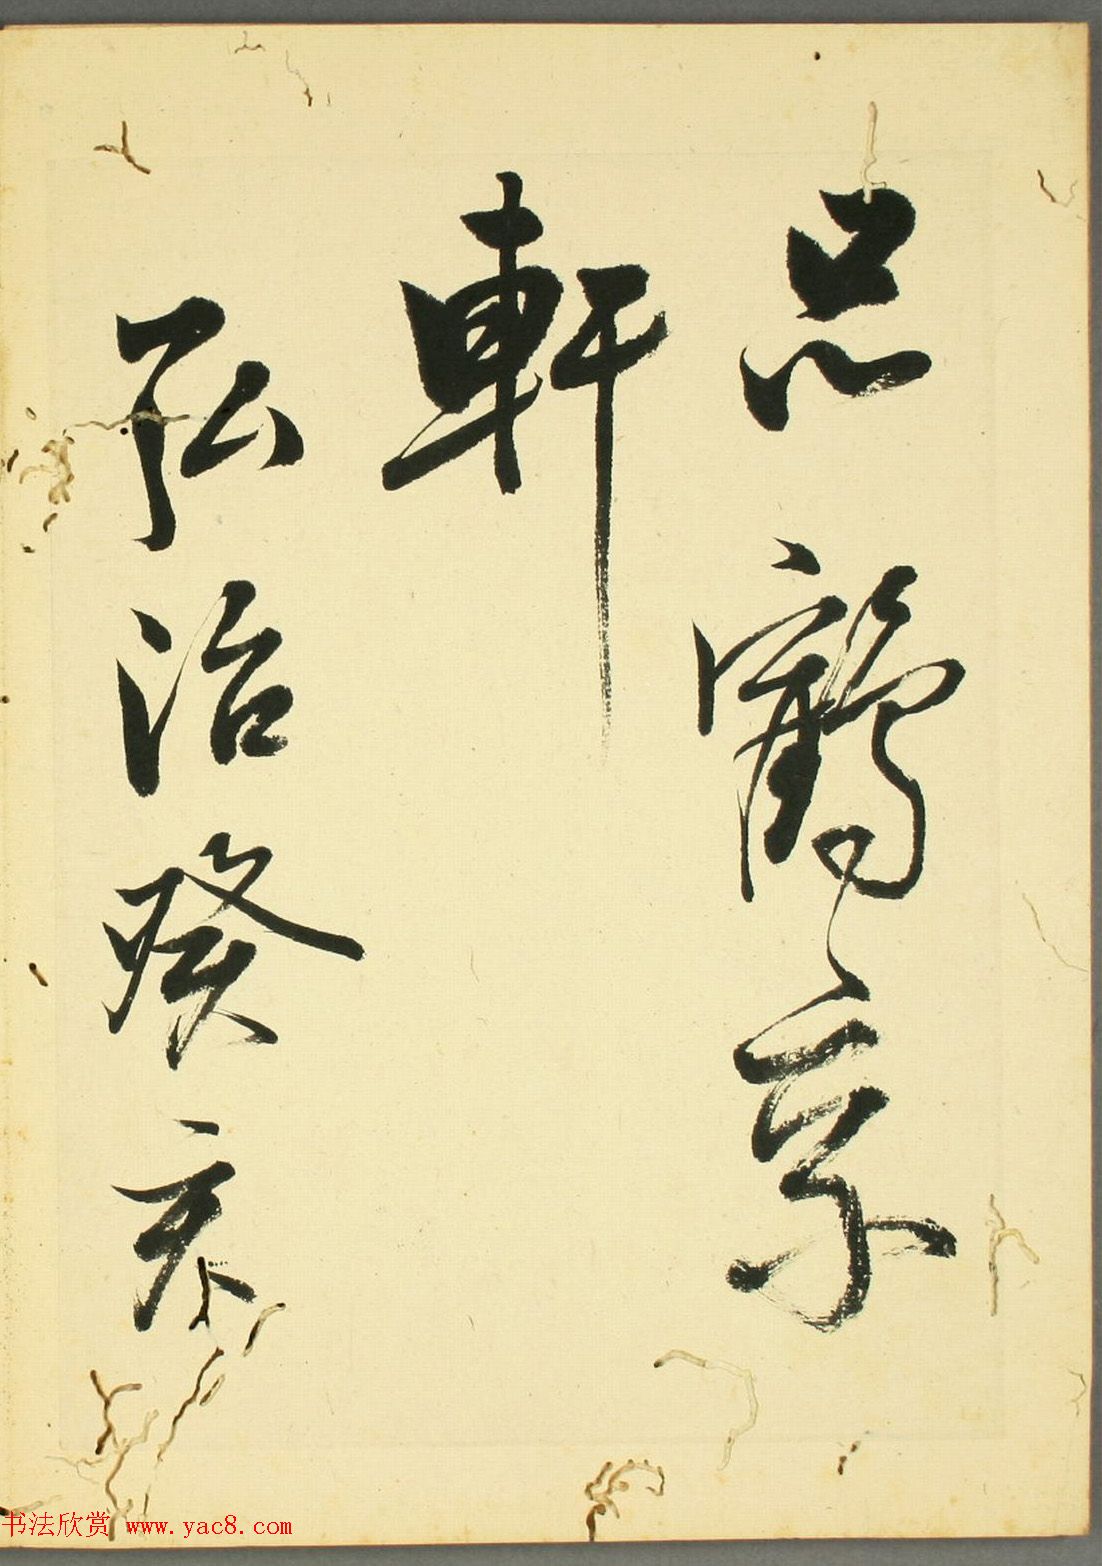 品鶴京
軒
弘治癸亥
书法欣赏 www.yac8.com